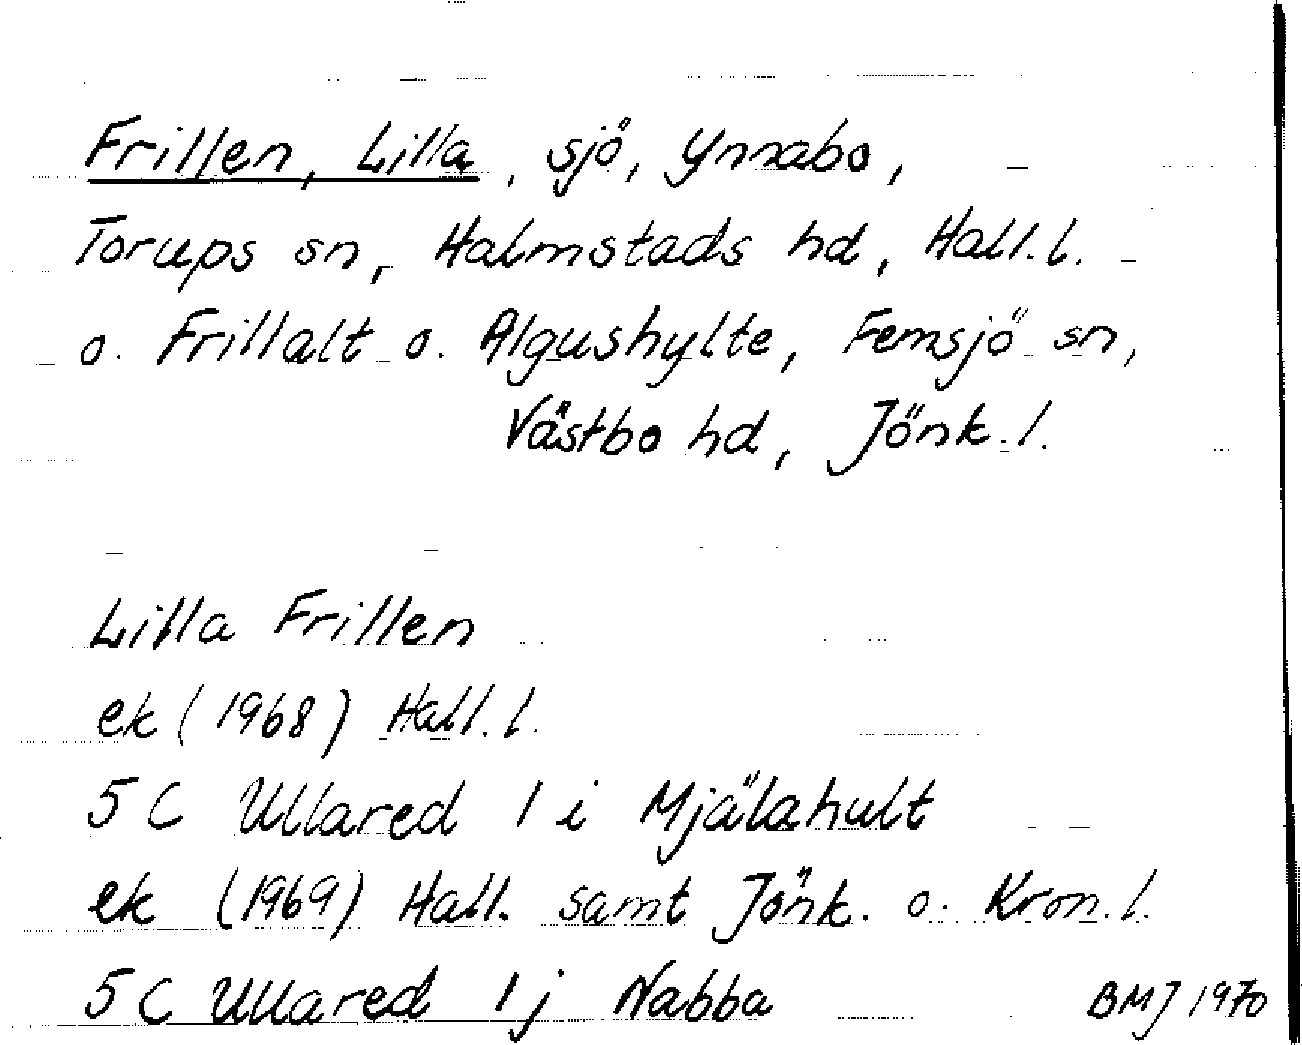 Frillen, Lilla, sjö, Ynnabo,
Torups sn, Halmstads hd, Hall.l.
o. Frillalt o. Algushylte, Femsjö sn,
Västbo hd, Jönk.l.
Lilla Frillen
ek (1968) Hall.l.
5C Ullared 1 i Mjälahult
ek (1969) Hall. samt Jönk. o. Kron.l.
5C Ullared 1j Nabba
BMJ 1970